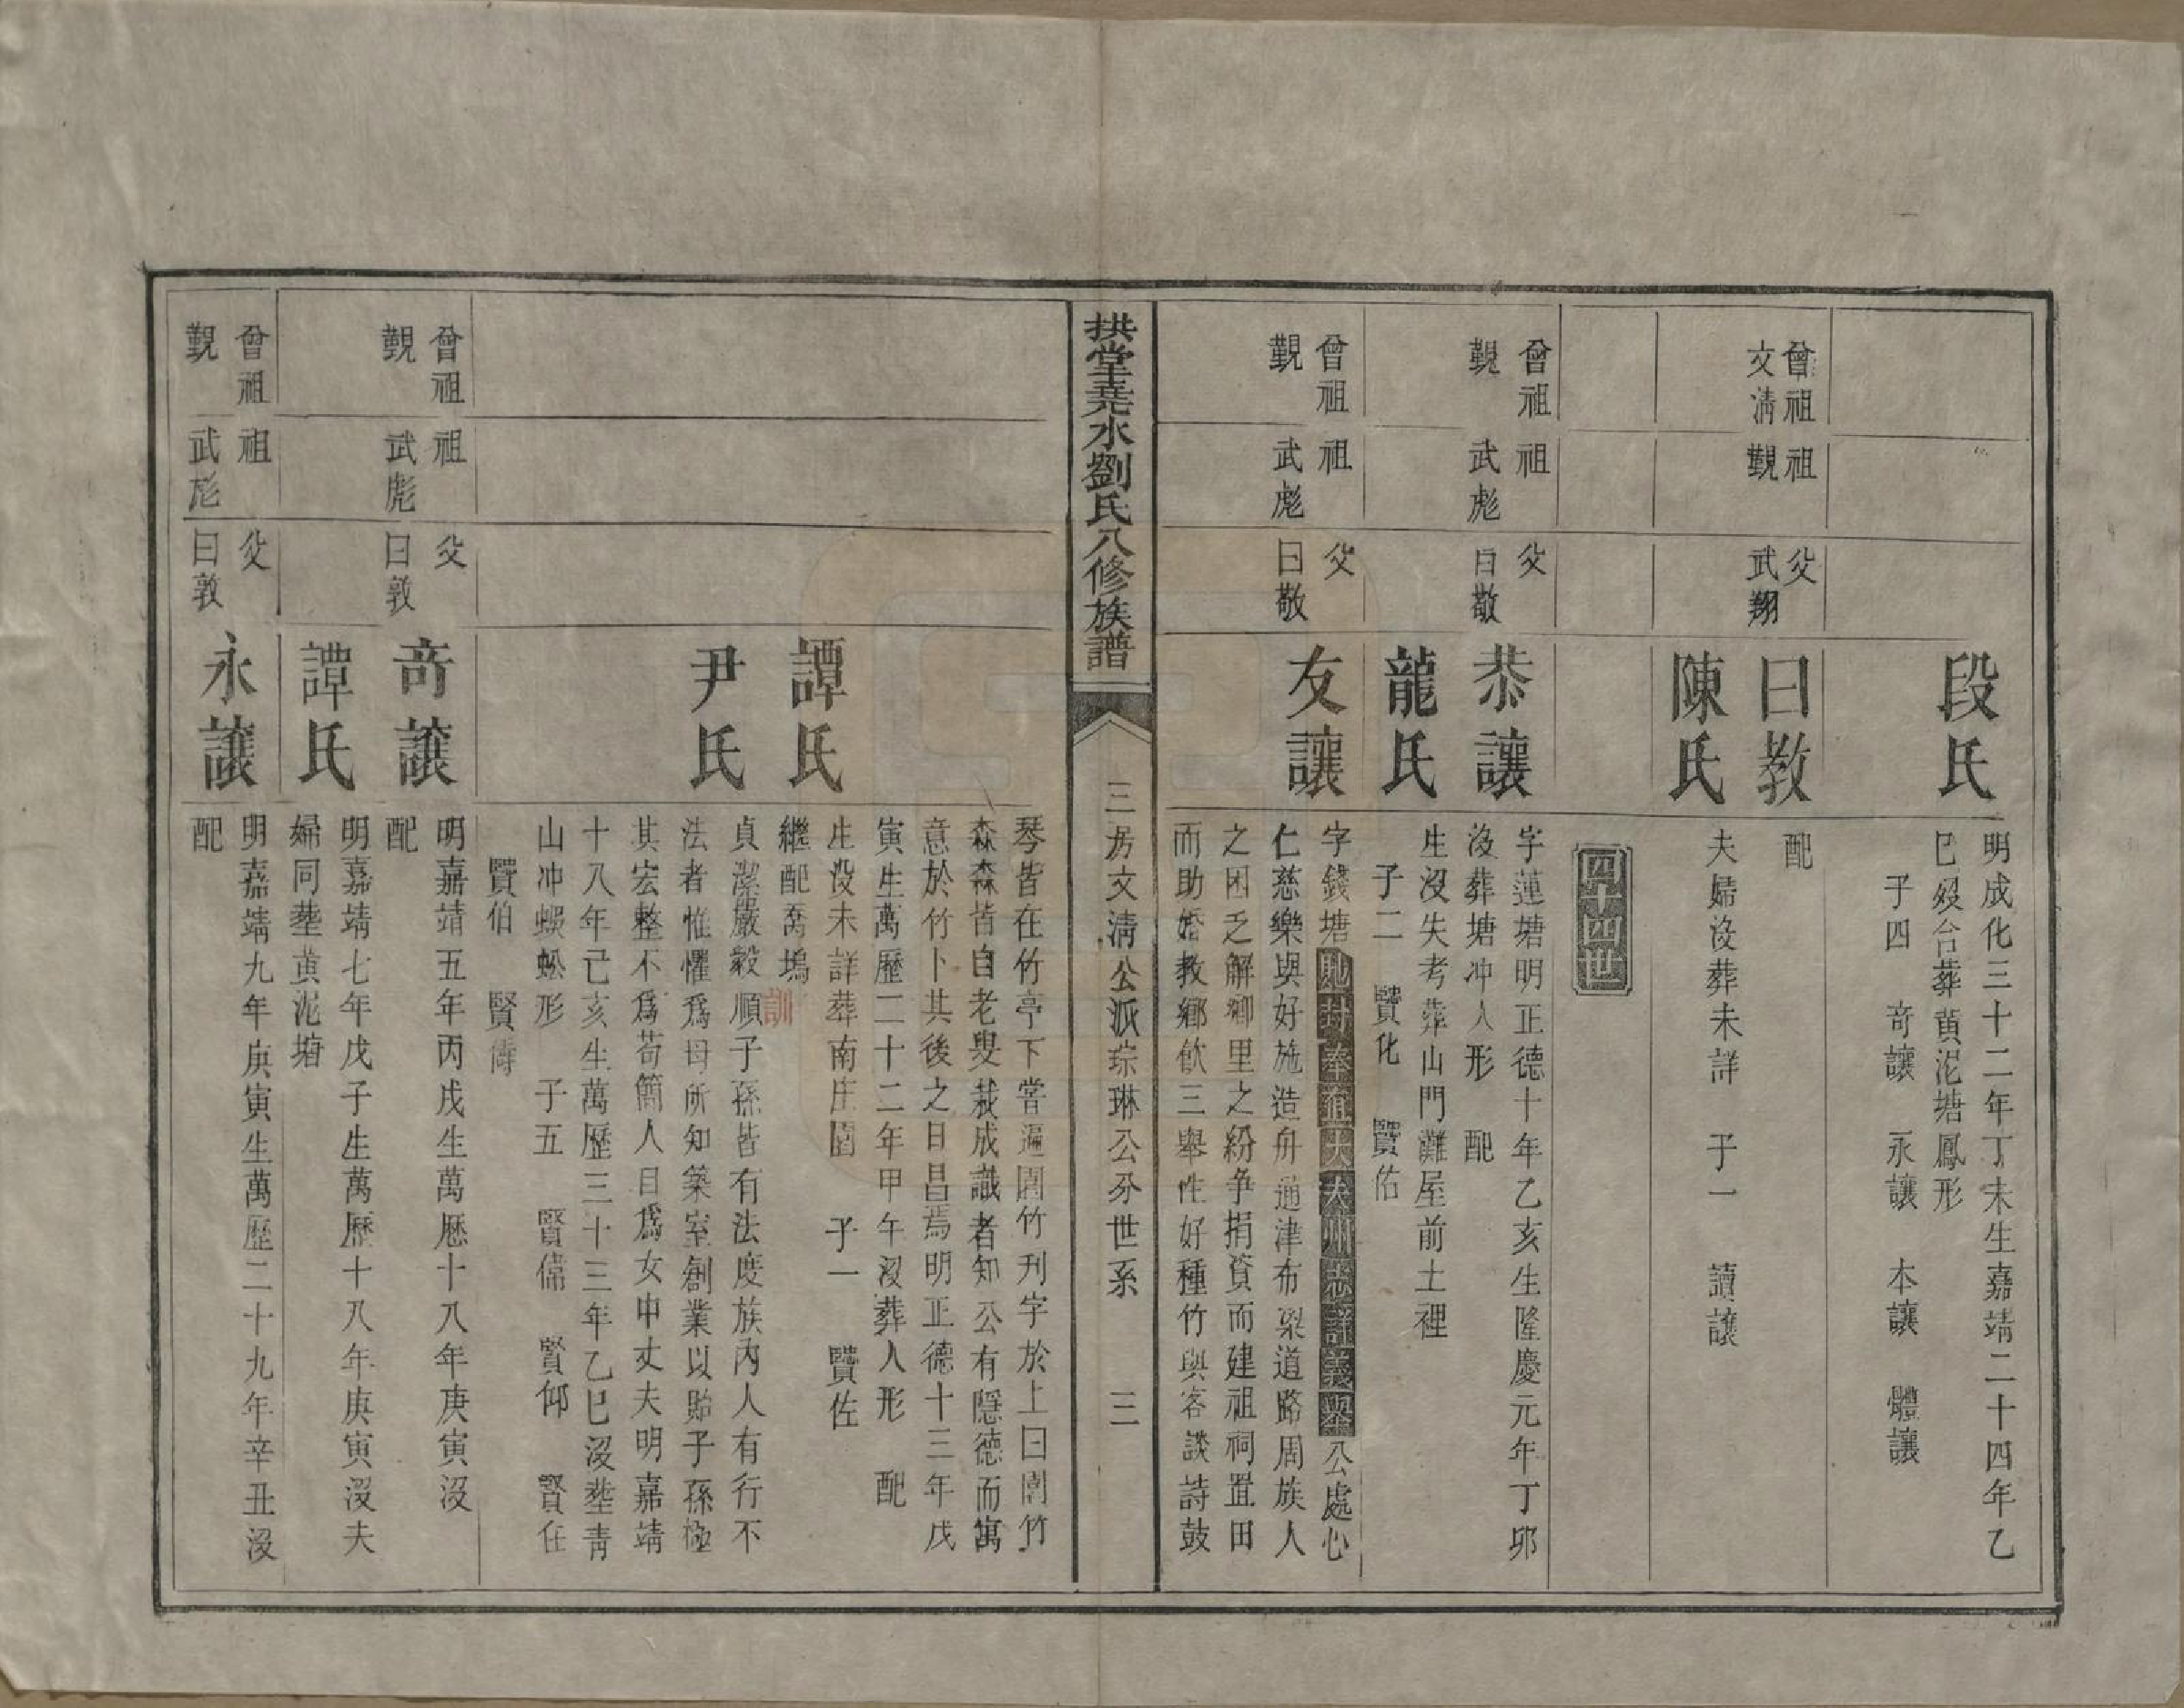 段氏
明成化三十二年丁未生嘉靖二十四年乙
巳歿合葬黄泥塘鳳形
子四　奇讓　永讓　本讓　體讓
曾祖文清
祖覲
父武翔
曰教
配
陳氏
夫婦没葬未詳　子一　讀讓
四十四世
曾祖覲
祖武彪
父曰敬
恭讓
字蓮塘明正德十年乙亥生隆慶元年丁卯
没葬塘冲人形　配
龍氏
生沒失考葬山門灘屋前土裡
子二　賢化　賢佑
曾祖覲
祖武彪
父曰敬
友讓
字錢塘貤封奉直大夫州志詳義舉公處心
仁慈樂與好施造舟通津布梁道路周族人
之困乏解鄉里之紛争捐資而建祖祠置田
而助婚教鄉飲三舉性好種竹與客談詩鼓
拱堂堯水劉氏八修族譜
三房文清公派琮琳公分世系　三
琴皆在竹亭下嘗遍園竹刋字於上曰園竹
森森皆自老叟栽成識者知公有隱德而寓
意於竹卜其後之日昌焉明正德十三年戊
寅生萬歷二十二年甲午沒葬人形　配
譚氏
生没未詳葬南庄園　子一　賢佐
繼配喬塢訓
尹氏
貞潔嚴毅順子孫皆有法度族內人有行不
法者惟懼爲母所知築室創業以貽子孫極
其宏整不爲苟簡人目爲女中丈夫明嘉靖
十八年己亥生萬歷三十三年乙巳沒塟靑
山冲蝦蚣形　子五　賢儒　賢仰　賢任
賢伯　賢俦
曾祖覲
祖武彪
父曰敦
奇讓
明嘉靖五年丙戌生萬歷十八年庚寅沒
配
譚氏
明嘉靖七年戊子生萬歷十八年庚寅沒夫
婦同塟黄泥塘
曾祖覲
祖武彪
父曰敦
永讓
明嘉靖九年庚寅生萬歷二十九年辛丑沒
配